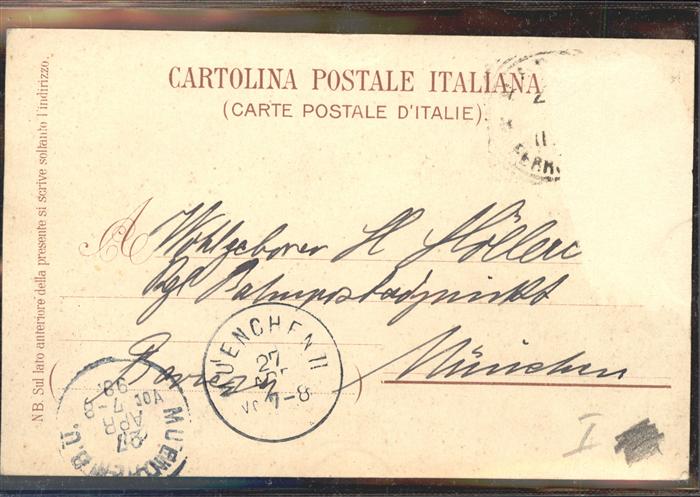 CARTOLINA POSTALE ITALIANA
(CARTE POSTALE D'ITALIE).
NB. Sul lato anteriore della presente si scrive soltanto l'indirizzo.
A Wohlgeboren H
Kgl
München
MUENCHEN II
27
APR
7-8
MUENCHEN B.D.
27
APR
VOR 7-8
98.
2
11
FERR
I